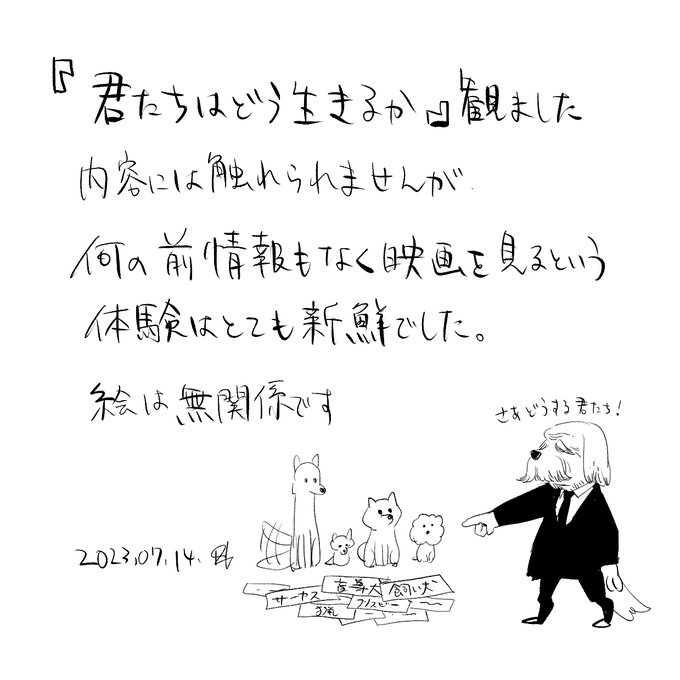 『君たちはどう生きるか』観ました
内容には触れられませんが
何の前情報もなく映画を見るという
体験はとても新鮮でした。
絵は無関係です
さあどうする君たち!
2023.07.14.
サーカス
盲導犬
飼い犬
フリスビー